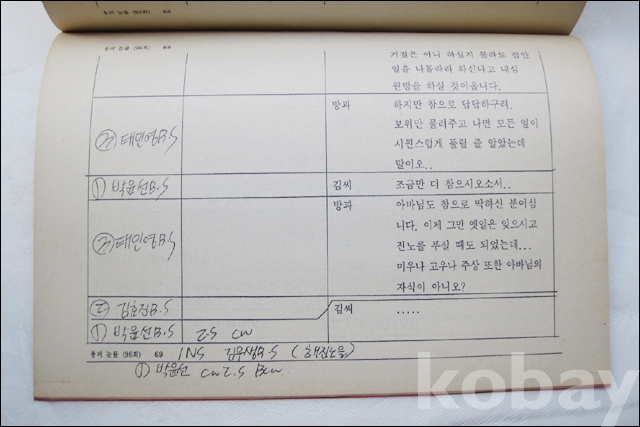 용의 눈물 (96회) 69
용의 눈물 (96회) 69
거절은 아니 하실지 몰라도 집안
일을 나몰라라 하신다고 내심
원망을 하실 것이옵니다.
방과 하지만 참으로 답답하구려.
보위만 물려주고 나면 모든 일이
② 태민영B.S 시원스럽게 풀릴 줄 알았는데
말이오..
① 박윤선B.S 김씨 조금만 더 참으시오소서..
방과 아바님도 참으로 딱하신 분이십
니다. 이제 그만 옛일은 잊으시고
② 태민영B.S 진노를 푸실 때도 되었는데...
미우나 고우나 주상 또한 아바님의
자식이 아니오?
② 김효진B.S 김씨 .....
① 박윤선B.S Z.S CW
용의 눈물 (96회) 69 INS 김무생B.S
① 박윤선 CW Z.S
kobay